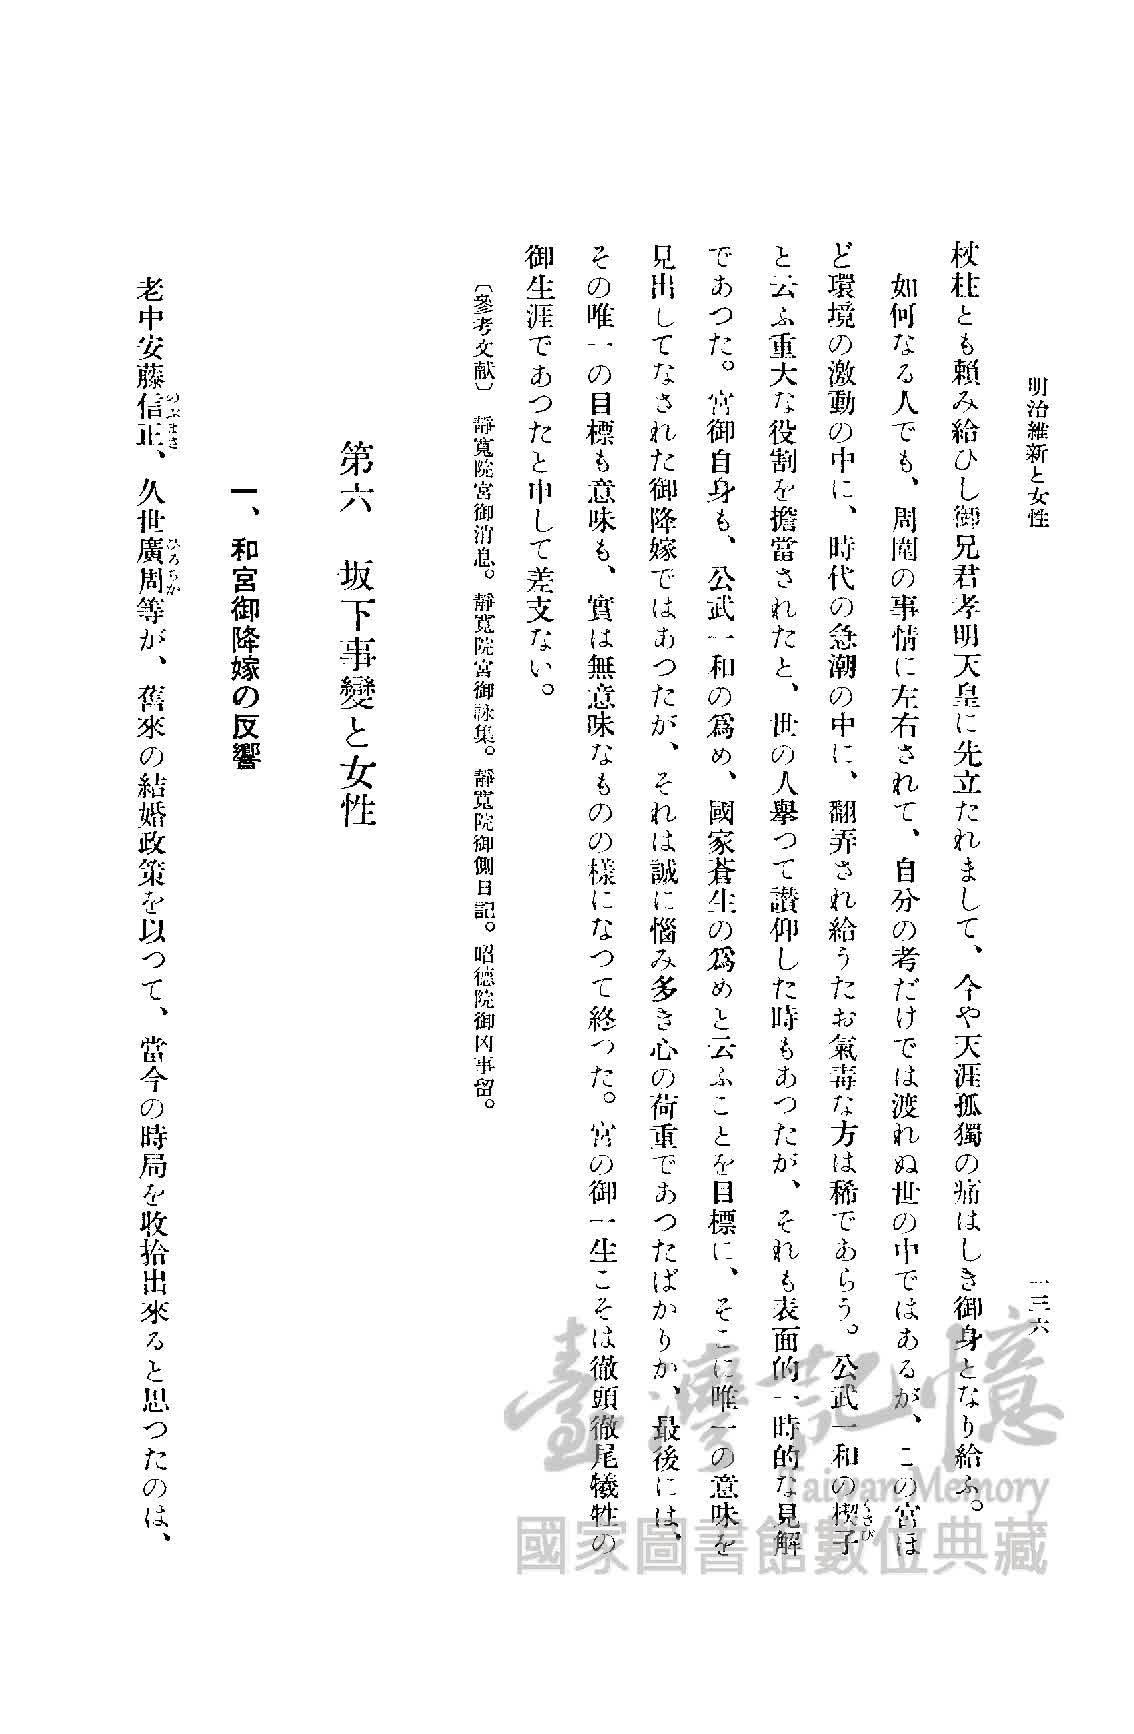 明治維新と女性
一三六
杖柱とも賴み給ひし御兄君孝明天皇に先立たれまして、今や天涯孤獨の痛はしき御身となり給ふ。
如何なる人でも、周圍の事情に左右されて、自分の考だけでは渡れぬ世の中ではあるが、この宮ほ
ど環境の激動の中に、時代の急潮の中に、翻弄され給うたお氣毒な方は稀であらう。公武一和の楔子
くさび
と云ふ重大な役割を擔當されたと、世の人擧つて讃仰した時もあつたが、それも表面的一時的な見解
であつた。宮御自身も、公武一和の爲め、國家蒼生の爲めと云ふことを目標に、そこに唯一の意味を
見出してなされた御降嫁ではあつたが、それは誠に惱み多き心の荷重であつたばかりか、最後には、
その唯一の目標も意味も、實は無意味なものの樣になつて終つた。宮の御一生こそは徹頭徹尾犧牲の
御生涯であつたと申して差支ない。
〔參考文献〕 靜寬院宮御消息。靜寬院宮御詠集。靜寬院御側日記。昭德院御凶事留。
第六 坂下事變と女性
一、和宮御降嫁の反響
老中安藤信正、久世廣周等が、舊來の結婚政策を以つて、當今の時局を收拾出來ると思つたのは、
のぶまさ
ひろちか
臺灣記憶
Taiwan Memory
國家圖書館數位典藏